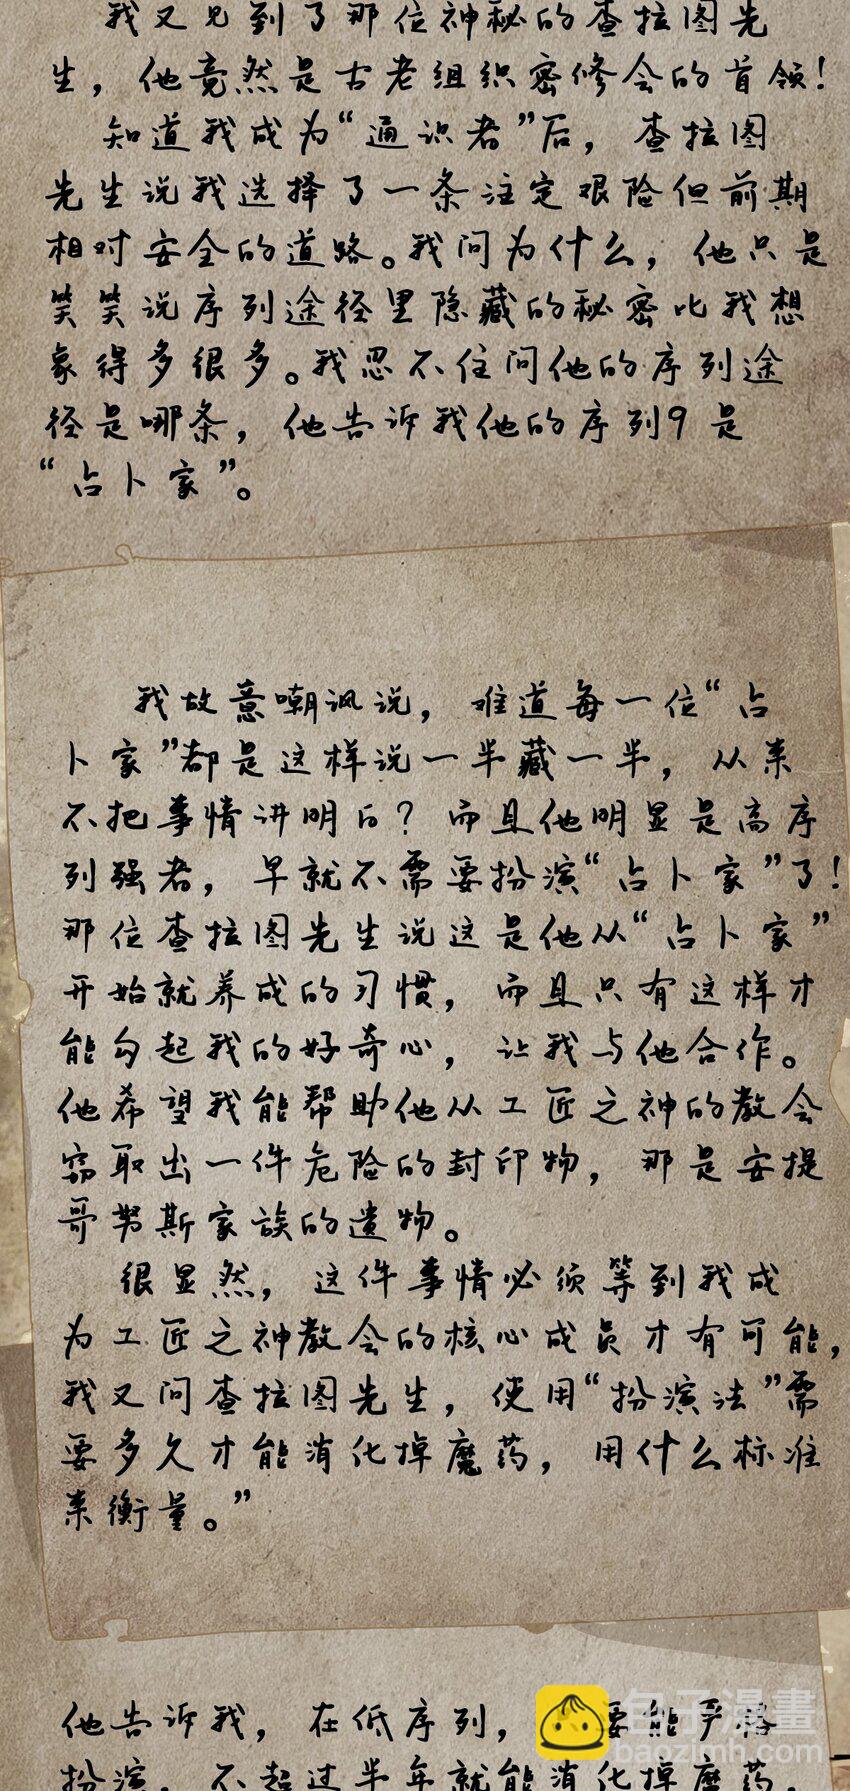 我又见到了那位神秘的查拉图先
生，他竟然是古老组织密修会的首领！
知道我成为“通识者”后，查拉图
先生说我选择了一条注定艰险但前期
相对安全的道路。我问为什么，他只是
笑笑说序列途径里隐藏的秘密比我想
象得多很多。我忍不住问他的序列途
径是哪条，他告诉我他的序列9是
“占卜家”。
我故意嘲讽说，难道每一位“占
卜家”都是这样说一半藏一半，从来
不把事情讲明白？而且他明显是高序
列强者，早就不需要扮演“占卜家”了！
那位查拉图先生说这是他从“占卜家”
开始就养成的习惯，而且只有这样才
能勾起我的好奇心，让我与他合作。
他希望我能帮助他从工匠之神的教会
窃取出一件危险的封印物，那是安提
哥努斯家族的遗物。
很显然，这件事情必须等到我成
为工匠之神教会的核心成员才有可能，
我又问查拉图先生，使用“扮演法”需
要多久才能消化掉魔药，用什么标准
来衡量。”
他告诉我，在低序列，要能严格
扮演，不超过半年就能消化掉魔药
包子漫畫
baozimh.com